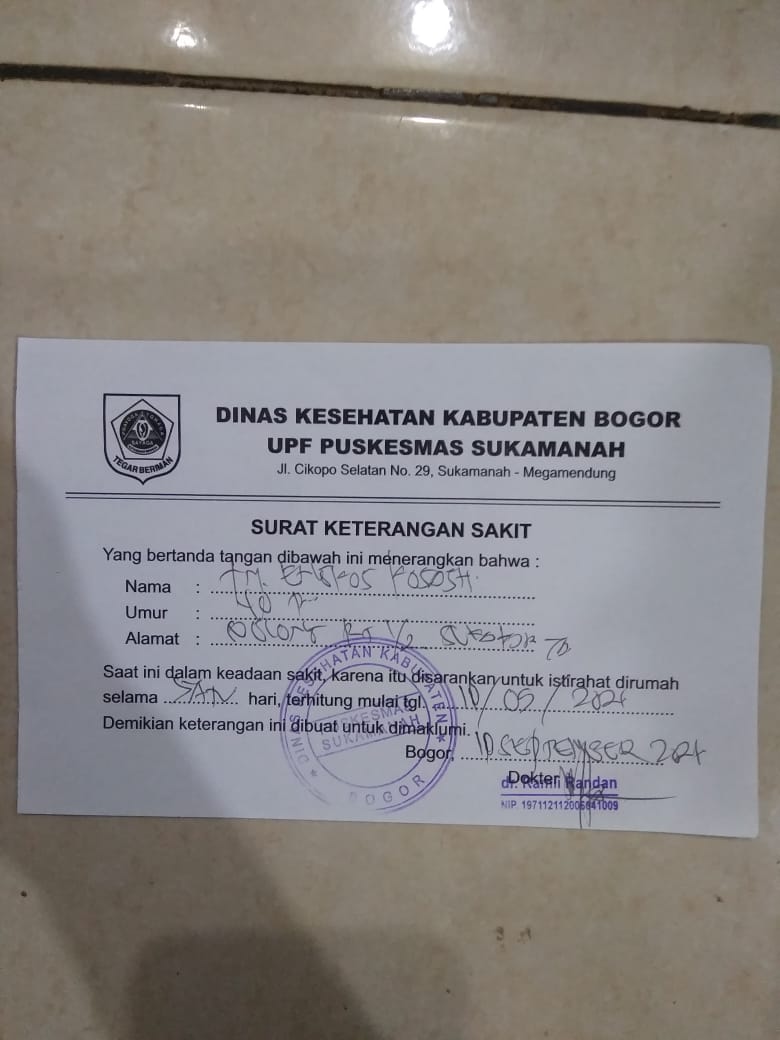 DINAS KESEHATAN KABUPATEN BOGOR
UPF PUSKESMAS SUKAMANAH
Jl. Cikopo Selatan No. 29, Sukamanah - Megamendung
TEGAR BERIMAN
SURAT KETERANGAN SAKIT
Yang bertanda tangan dibawah ini menerangkan bahwa :
Nama :
Umur : 40
Alamat :
Saat ini dalam keadaan sakit, karena itu disarankan untuk istirahat dirumah
selama hari, terhitung mulai tgl. 10/
Demikian keterangan ini dibuat untuk dimaklumi.
Bogor, 10 SEPTEMBER
Dokter
dr. Randan
NIP. 19711211200
DINAS KESEHATAN KABUPATEN
PUSKESMAS
SUKAMANAH
BOGOR